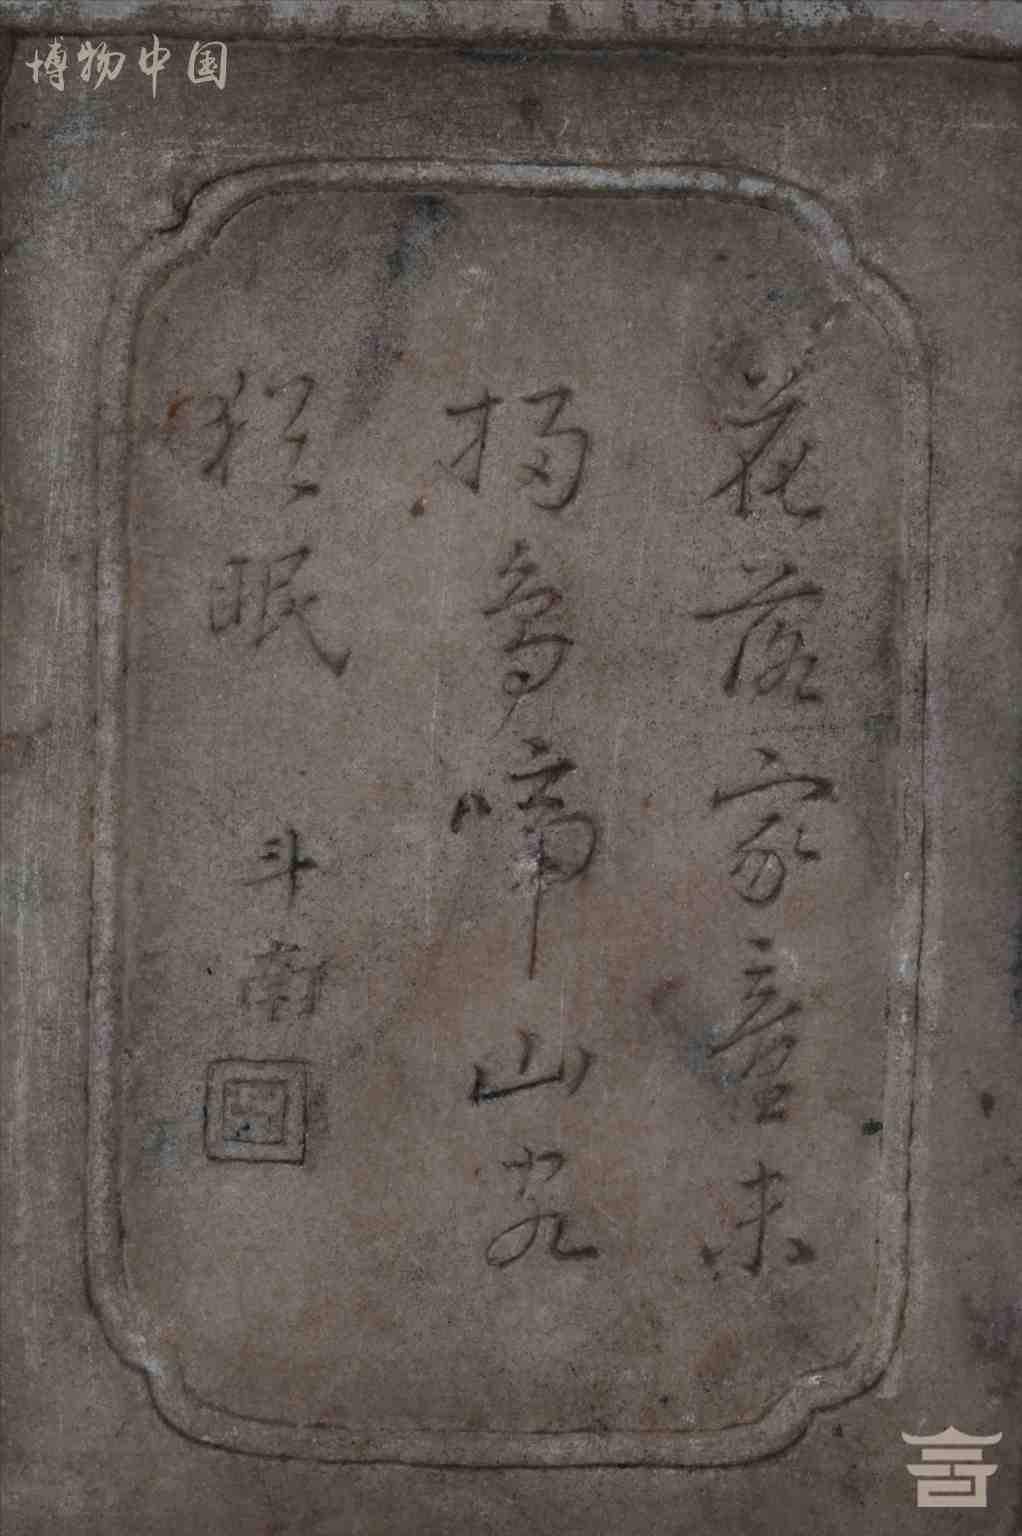 博物中国
花落家童未
掃鳥啼山客
猶眠
斗南